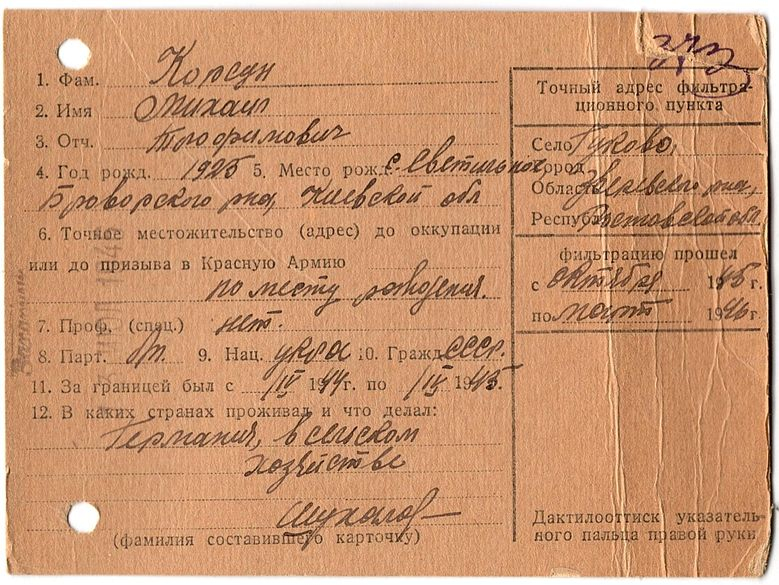 1. Фам. Корсун
2. Имя Михаил
3. Отч. Трофимович
4. Год рожд. 1925 5. Место рожд. с. Светильное
Броворского р-на, Киевской обл
6. Точное местожительство (адрес) до оккупации
или до призыва в Красную Армию
по месту рождения.
7. Проф. (спец.) нет.
8. Парт. б/п 9. Нац. укр 10. Гражд. СССР.
11. За границей был с /IV 1944 г. по /IV 1945
12. В каких странах проживал и что делал:
Германия, в сельском
хозяйстве
(фамилия составившего карточку)
Точный адрес фильтра-
ционного пункта
Село Гуково,
Город
Область Зверевского р-на,
Республика Ростовской обл.
фильтрацию прошел
с октября 1945 г.
по март 1946 г.
Дактилооттиск указатель-
ного пальца правой руки